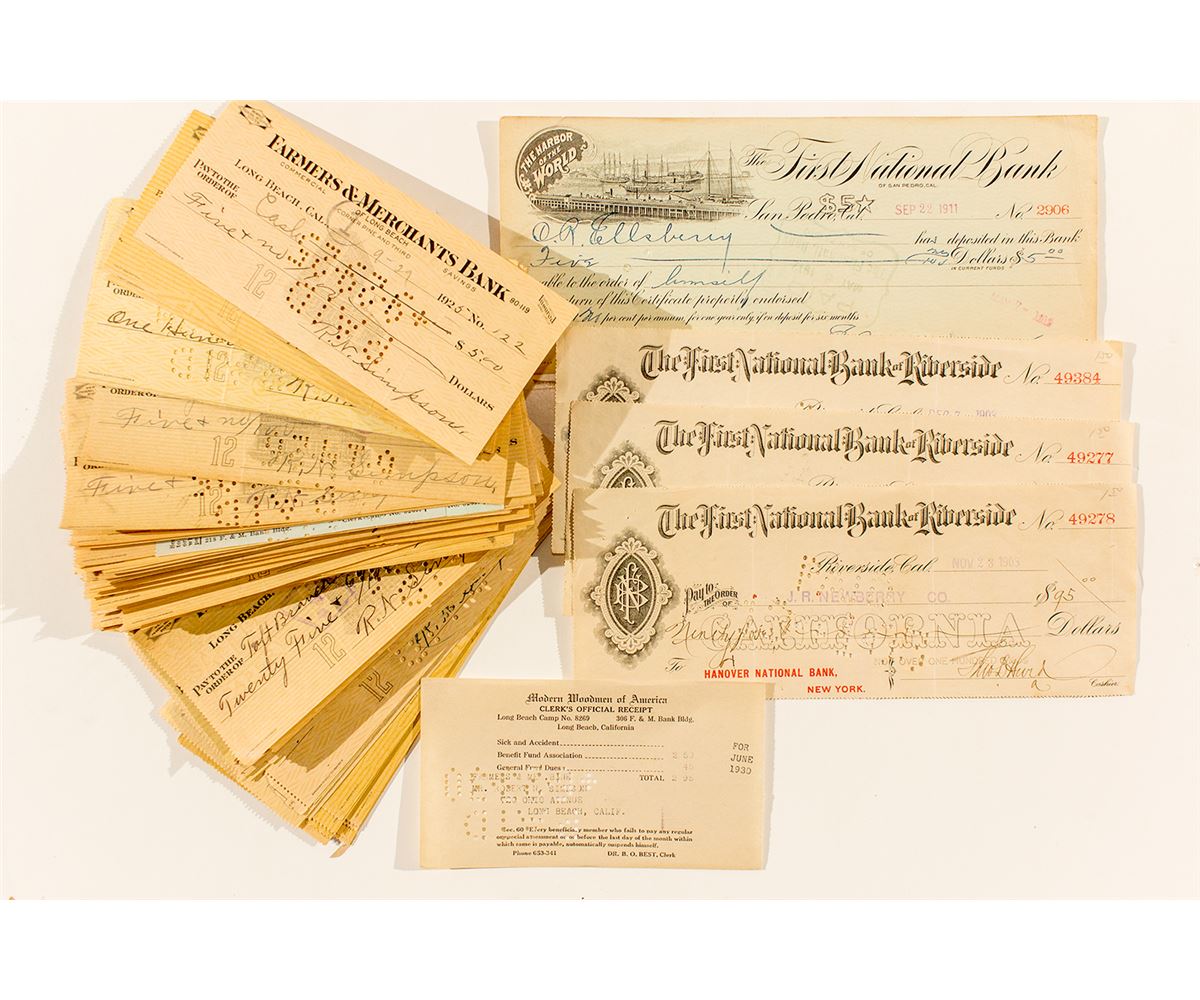 FARMERS & MERCHANTS BANK
COMMERCIAL OF LONG BEACH SAVINGS
CORNER PINE AND THIRD
90119
LONG BEACH, CAL.
1925 No. 122
PAY TO THE
ORDER OF Cash $ 5.00
Five & no
DOLLARS
12
R. N. Simpson
ORDER OF
One Hun
12
ORDER OF
Five & no/
12
Simpson
ORDER OF
Five &
12
218 F. & M. BANK BLDG.
LONG BEACH,
PAY TO THE
ORDER OF Taft Branch
Twenty Five &
12
R. N. S
12
THE HARBOR
OF THE
WORLD
The First National Bank
OF SAN PEDRO, CAL.
$5
San Pedro, Cal. SEP 22 1911 No. 2906
O. R. Ellsberry has deposited in this Bank
Five Dollars $5.00
IN CURRENT FUNDS
able to the order of himself
turn of this Certificate properly endorsed
per cent per annum, for one year only, if on deposit for six months
The First National Bank of Riverside No. 49384
DEC 7 1903
The First National Bank of Riverside No. 49277
The First National Bank of Riverside No. 49278
Riverside, Cal. NOV 23 1903
Pay to
THE ORDER OF J. R. NEWBERRY CO. $95
CALIFORNIA
Ninety five Dollars
NOT OVER ONE HUNDRED
To HANOVER NATIONAL BANK,
NEW YORK.
Cashier
Modern Woodmen of America
CLERK'S OFFICIAL RECEIPT
Long Beach Camp No. 8269 306 F. & M. Bank Bldg.
Long Beach, California
Sick and Accident
Benefit Fund Association 2 50
General Fund Dues 45
TOTAL 2 95
FOR
JUNE
1930
OHIO AVENUE
LONG BEACH, CALIF.
Sec. 60 Every beneficiary member who fails to pay any regular
or special assessment on or before the last day of the month within
which same is payable, automatically suspends himself.
Phone 653-341 DR. B. O. BEST, Clerk